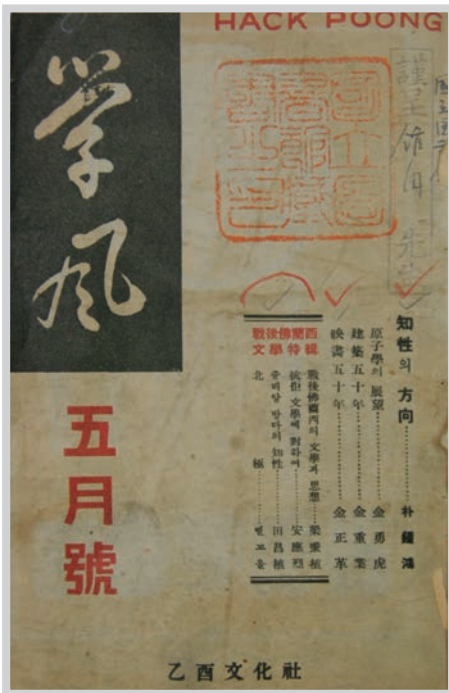 HACK POONG
學風
五月號
知性의 方向 朴鍾鴻
原子學의 展望 金勇虎
建築五十年 金重業
映畵五十年 金正革
戰後佛蘭西
文學特輯
戰後佛蘭西의 文學과 思想 梁秉植
抗拒文學에 對하여 安應烈
쥴리앙 방다의 知性 田昌植
北極 쩐꼬올
乙酉文化社